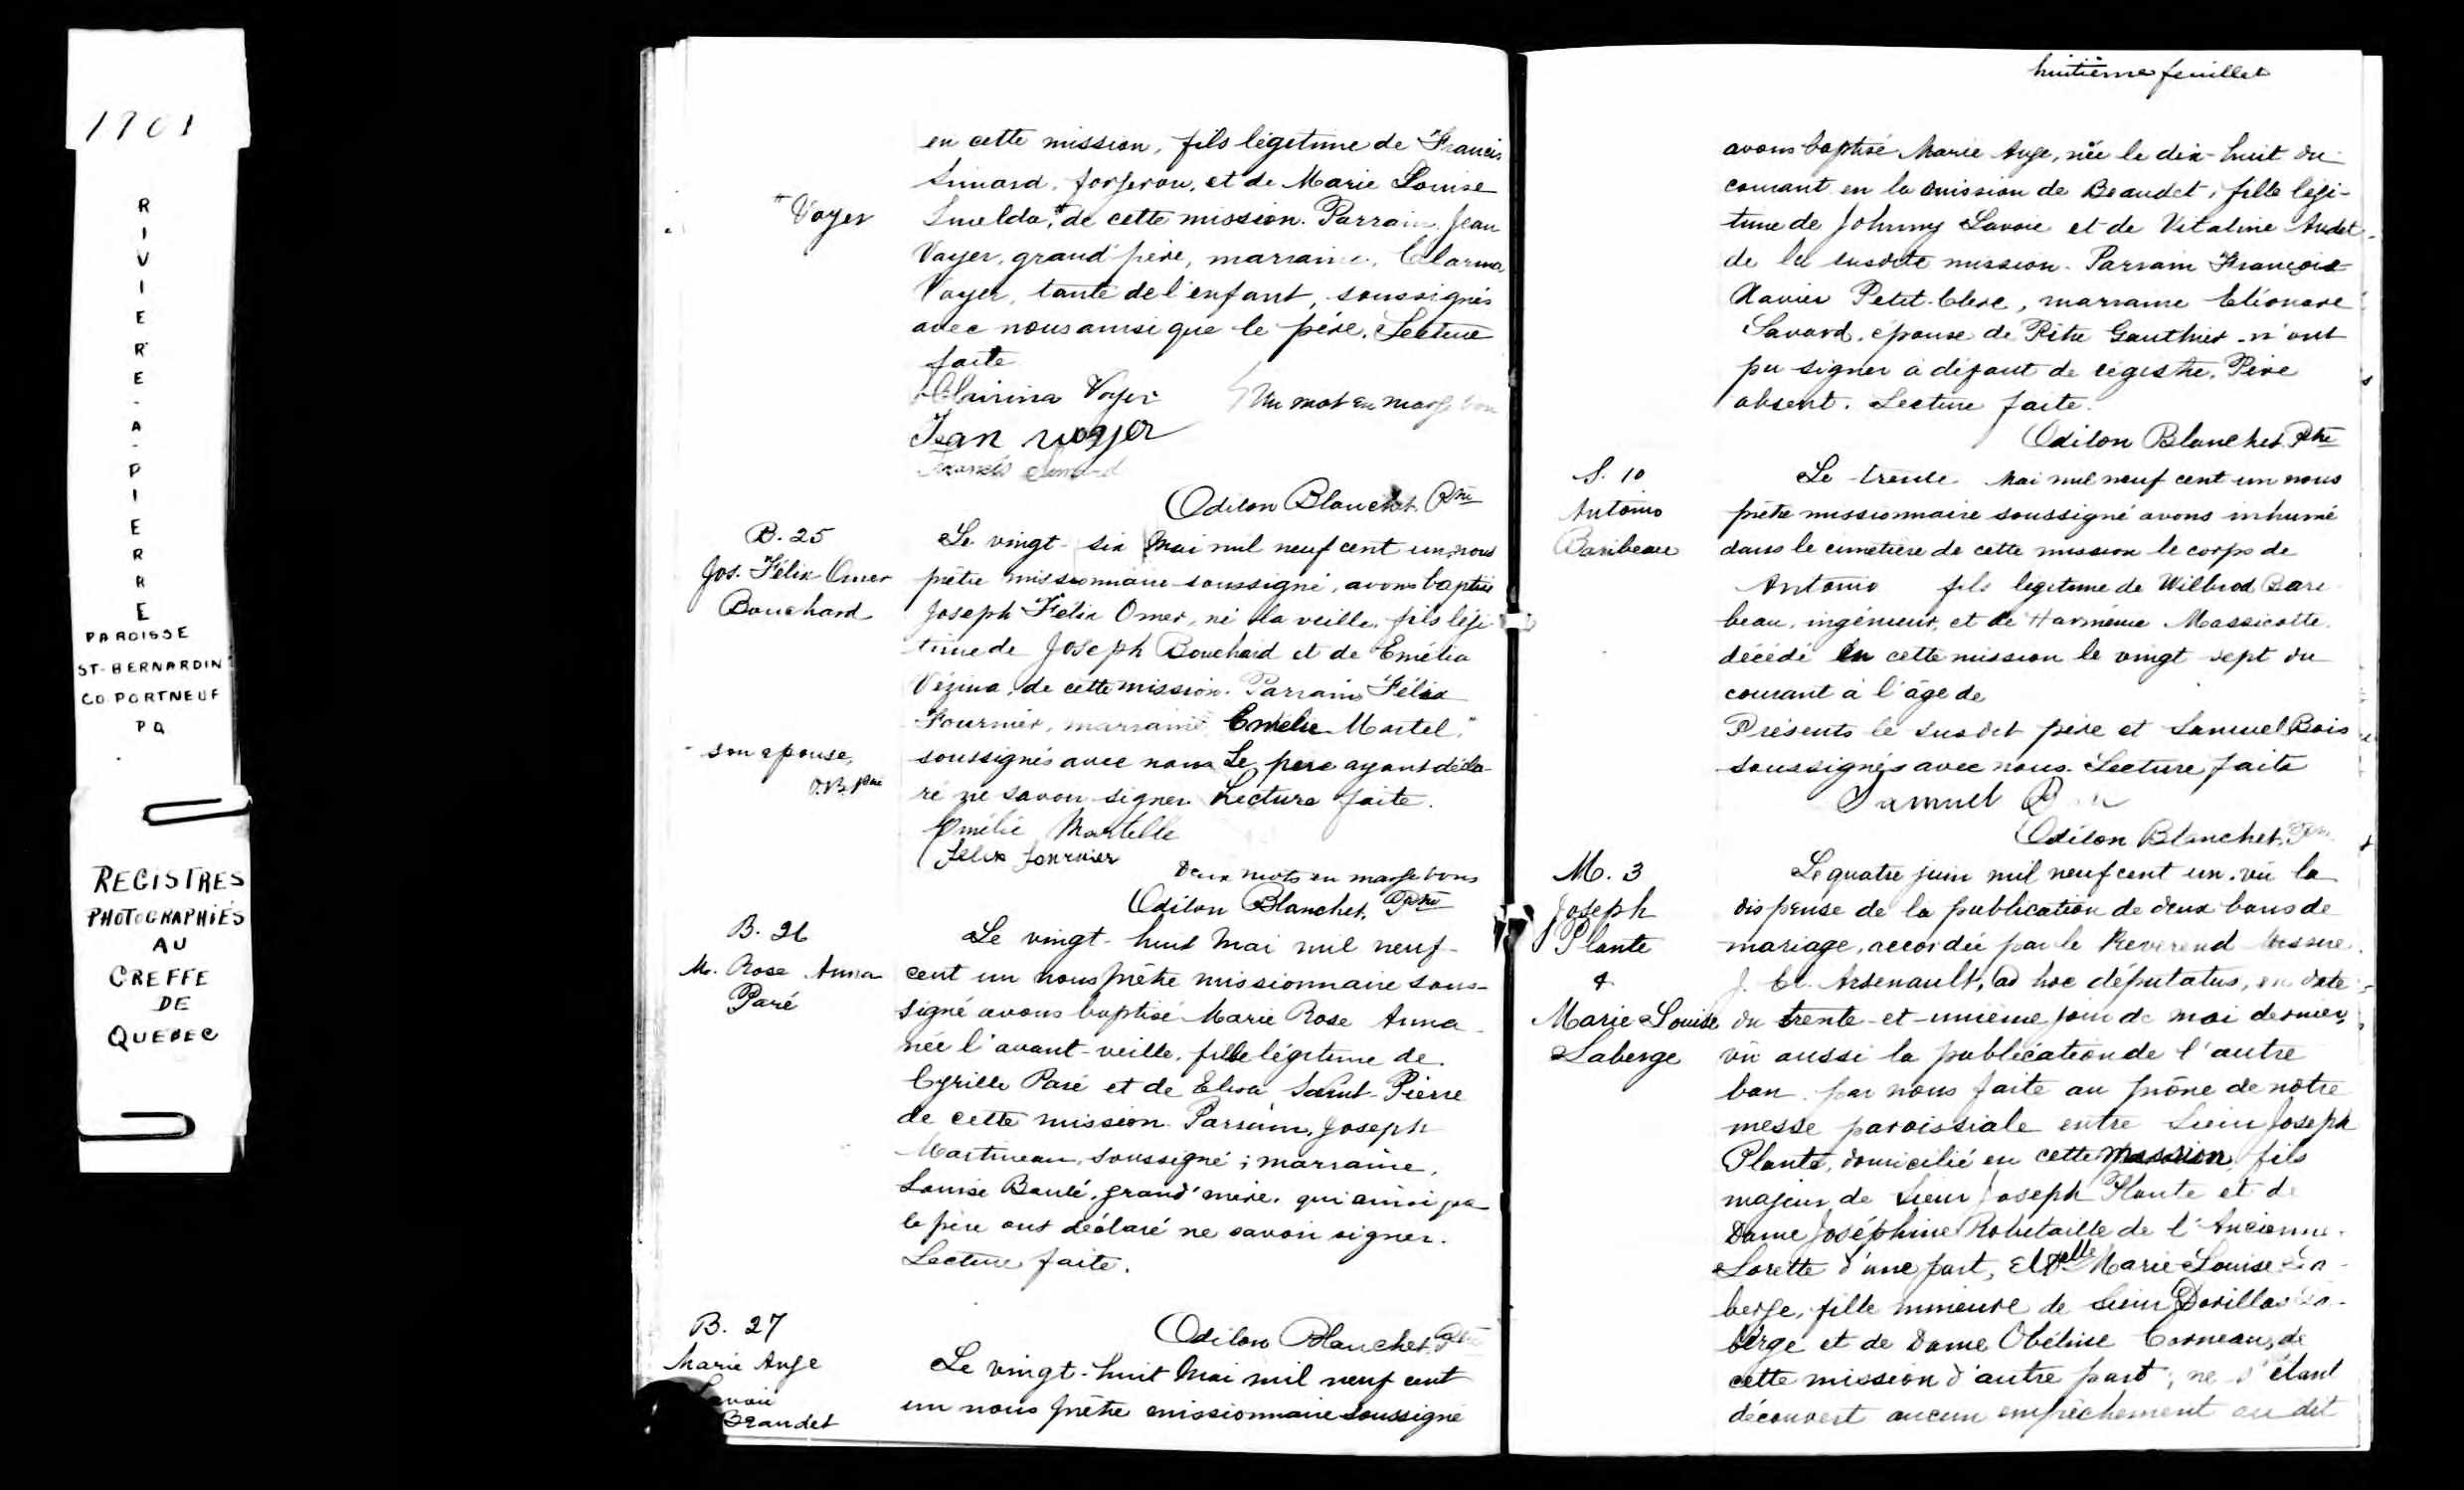 1901
RIVIERE-A-PIERRE
PAROISSE
ST-BERNARDIN
CO PORTNEUF
PQ
REGISTRES
PHOTOGRAPHIÉS
AU
GREFFE
DE
QUEBEC
en cette mission, fils légitime de Francis
Simard, forgeron, et de Marie Louise
" Voyer
Imelda," de cette mission. Parrain Jean
Voyer, grand'père, marraine,
Voyer, tante de l'enfant, soussignés
avec nous ainsi que le père. Lecture
faite
Voyer
Un mot en marge bon
Jean voyer
Francis Simard
Odilon Blanchet Ptre
B. 25
Jos. Félix Omer
Bouchard
Le vingt-six Mai mil neuf cent un, nous
prêtre missionnaire soussigné, avons baptisé
Joseph Félix Omer, né la veille, fils légi-
time de Joseph Bouchard et de Emélia
Vézina, de cette mission. Parrain Félix
Fournier, marraine Emélie Martel,"
" son épouse,
O.B. Ptre
soussignés avec nous Le père ayant décla-
ré ne savoir signer. Lecture faite.
Emélie Martelle
félix fournier
Deux mots en marge bons
Odilon Blanchet, Ptre
B. 26
M. Rose Anna
Paré
Le vingt-huit Mai mil neuf-
cent un nous prêtre missionnaire sous-
signé avons baptisé Marie Rose Anna
née l'avant-veille, fille légitime de
Cyrille Paré et de Elisa Saint-Pierre
de cette mission. Parrain, Joseph
Martineau, soussigné ; marraine,
Louise Baulé, grand'mère, qui ainsi que
le père ont déclaré ne savoir signer.
Lecture faite.
Odilon Blanchet, Ptre
B. 27
Marie Ange
Beaudet
Le vingt-huit Mai mil neuf cent
un nous prêtre missionnaire soussigné
huitième feuillet
avons baptisé Marie Ange, née le dix-huit du
courant en la mission de Beaudet, fille légi-
time de Johnny Savoie et de Vitaline Audet
de la susdite mission. Parrain François-
Xavier Petit-Clerc, marraine Eléonore
Savard, épouse de Pitre Gauthier n'ont
pu signer à défaut de régistre. Père
absent. Lecture faite.
Odilon Blanchet Ptre
S. 10
Antonio
Baribeau
Le trente Mai mil neuf cent un nous
prêtre missionnaire soussigné avons inhumé
dans le cimetière de cette mission le corps de
Antonio fils légitime de Wilbrod Bari
beau, ingénieur, et de Harménie Massicotte.
décédé en cette mission le vingt sept du
courant à l'âge de
Présents le susdit père et Samuel Bois
soussignés avec nous. Lecture faite
Samuel
Odilon Blanchet, Ptre
M. 3
Joseph
Plante
&
Marie Louise
Laberge
Le quatre juin mil neuf cent un, vu la
dispense de la publication de deux bans de
mariage, accordée par le Révérend Messire
J. Cl. Arsenault, ad hoc députatus, en date
du trente-et-unième jour de mai dernier,
vu aussi la publication de l'autre
ban par nous faite au prône de notre
messe paroissiale entre Sieur Joseph
Plante, domicilié en cette mission, fils
majeur de Sieur Joseph Plante et de
Dame Joséphine Robitaille de l'Ancienne-
Lorette d'une part, Et Delle Marie Louise La-
berge, fille mineure de Sieur Dorillas La-
berge et de Dame Obéline Corneau, de
cette mission d'autre part ; ne s'étant
découvert aucun empêchement au dit